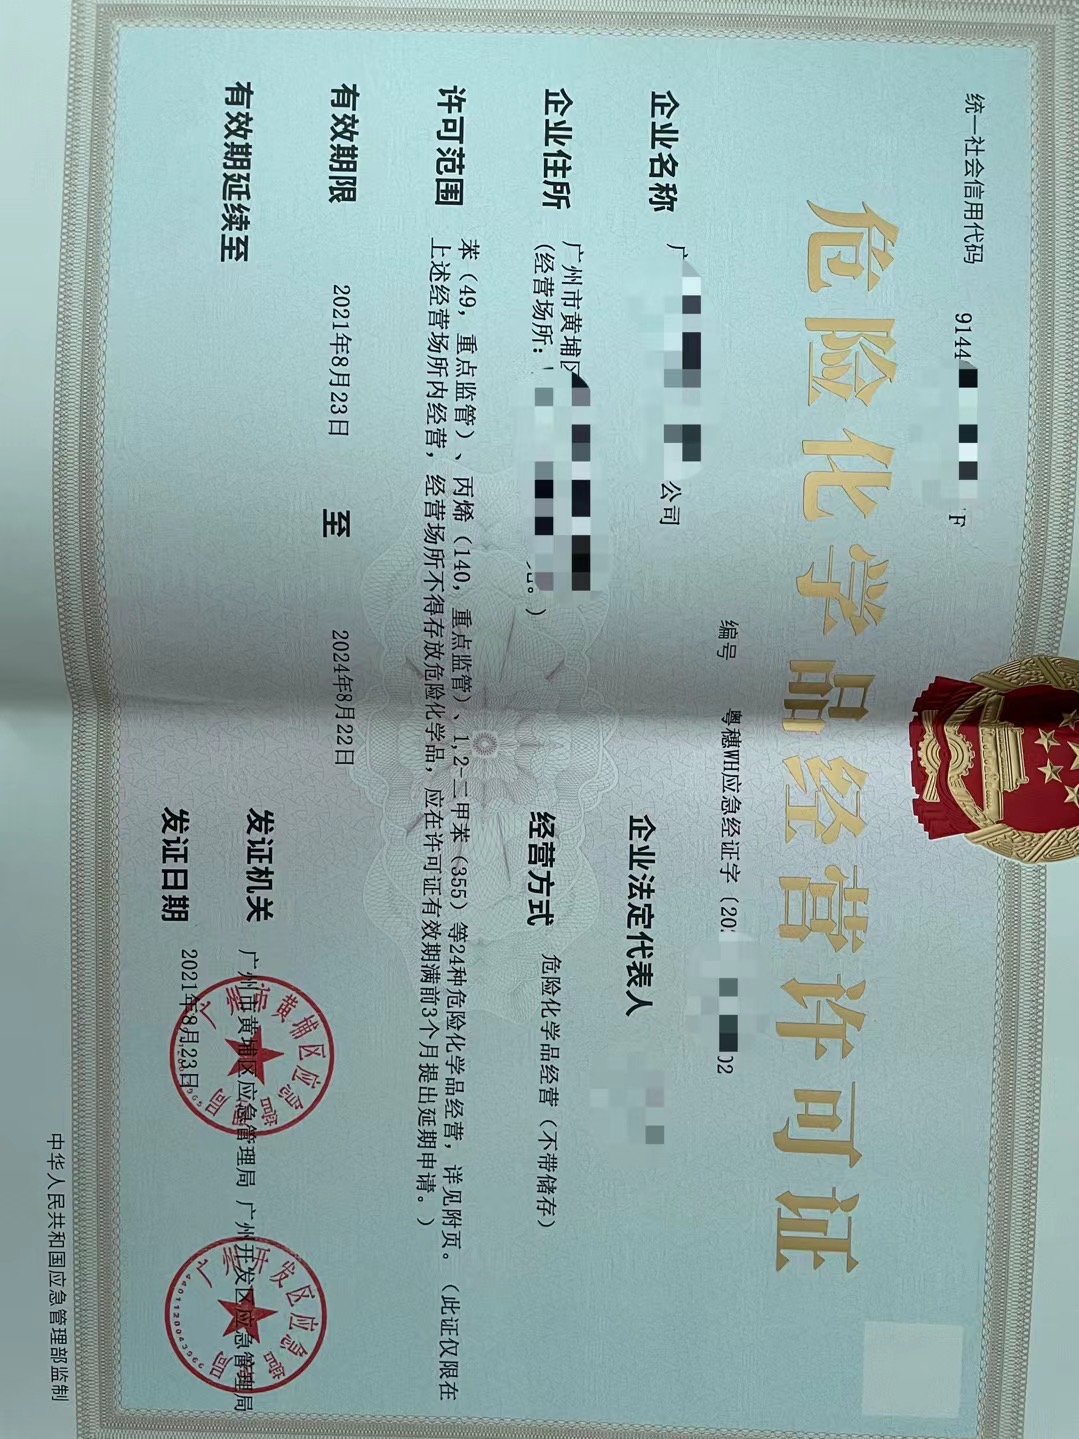 统一社会信用代码 9144 F
危险化学品经营许可证
编号 粤穗WH应急经证字〔20 02
企业名称 广 公司
企业法定代表人
企业住所 广州市黄埔区
（经营场所： 。）
经营方式 危险化学品经营（不带储存）
许可范围 苯（49，重点监管）、丙烯（140，重点监管）、1,2-二甲苯（355）等24种危险化学品经营，详见附页。（此证仅限在
上述经营场所内经营，经营场所不得存放危险化学品，应在许可证有效期满前3个月提出延期申请。）
有效期限 2021年8月23日 至 2024年8月22日
有效期延续至
发证机关 广州市黄埔区应急管理局 广州开发区应急管理局
发证日期 2021年8月23日
广州市黄埔区应急管理局
广州开发区应急管理局
中华人民共和国应急管理部监制